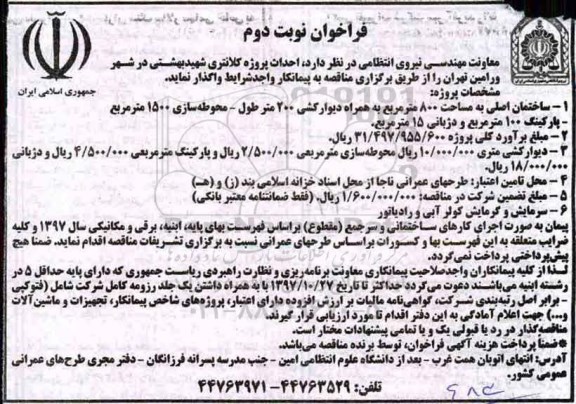 فراخوان نوبت دوم
جمهوری اسلامی ایران
معاونت مهندسی نیروی انتظامی در نظر دارد، احداث پروژه کلانتری شهیدبهشتی در شهر
ورامین تهران را از طریق برگزاری مناقصه به پیمانکار واجدشرایط واگذار نماید.
مشخصات پروژه:
۱ – ساختمان اصلی به مساحت ۸۰۰ مترمربع به همراه دیوارکشی ۲۰۰ متر طول – محوطه‌سازی ۱۵۰۰ مترمربع
– پارکینگ ۱۰۰ مترمربع و دژبانی ۱۵ مترمربع.
۲ – مبلغ برآورد کلی پروژه ۳۱/۴۹۷/۹۵۵/۶۰۰ ریال.
۳ – دیوارکشی متری ۱۰/۰۰۰/۰۰۰ ریال محوطه‌سازی مترمربعی ۲/۵۰۰/۰۰۰ ریال و پارکینگ مترمربعی ۴/۵۰۰/۰۰۰ ریال و دژبانی
۱۸/۰۰۰/۰۰۰ ریال.
۴ – محل تامین اعتبار: طرحهای عمرانی ناجا از محل اسناد خزانه اسلامی بند (ز) و (هـ)
۵ – مبلغ تضمین شرکت در مناقصه: ۱/۶۰۰/۰۰۰/۰۰۰ ریال. (فقط ضمانتنامه معتبر بانکی)
۶ – سرمایش و گرمایش کولر آبی و رادیاتور
پیمان به صورت اجرای کارهای ساختمانی و سرجمع (مقطوع) براساس فهرست بهای پایه، ابنیه، برقی و مکانیکی سال ۱۳۹۷ و کلیه
ضرایب متعلقه به این فهرست بها و کسورات براساس طرحهای عمرانی نسبت به برگزاری تشریفات مناقصه اقدام نماید. ضمنا هیچ
پیش‌پرداختی پرداخت نمی‌گردد.
لذا از کلیه پیمانکاران واجدصلاحیت پیمانکاری معاونت برنامه‌ریزی و نظارت راهبردی ریاست جمهوری که دارای پایه حداقل ۵ در
رشته ابنیه می‌باشند دعوت می‌گردد حداکثر تا تاریخ ۱۳۹۷/۱۰/۲۷ با به همراه داشتن یک جلد رزومه کامل شرکت شامل (فتوکپی
– برابر اصل رتبه‌بندی شرکت، گواهی‌نامه مالیات بر ارزش افزوده دارای اعتبار، پروژه‌های شاخص پیمانکار، تجهیزات و ماشین‌آلات
و...) جهت اعلام آمادگی به این دفتر اقدام تا مورد ارزیابی قرار گیرند.
مناقصه‌گذار در رد یا قبولی یک و یا تمامی پیشنهادات مختار است.
*ضمنا پرداخت هزینه آگهی فراخوان، توسط برنده مناقصه می‌باشد.
آدرس: انتهای اتوبان همت غرب – بعد از دانشگاه علوم انتظامی امین – جنب مدرسه پسرانه فرزانگان – دفتر مجری طرح‌های عمرانی
عمومی کشور.
تلفن: ۴۴۷۶۳۵۲۹–۴۴۷۶۳۹۷۱